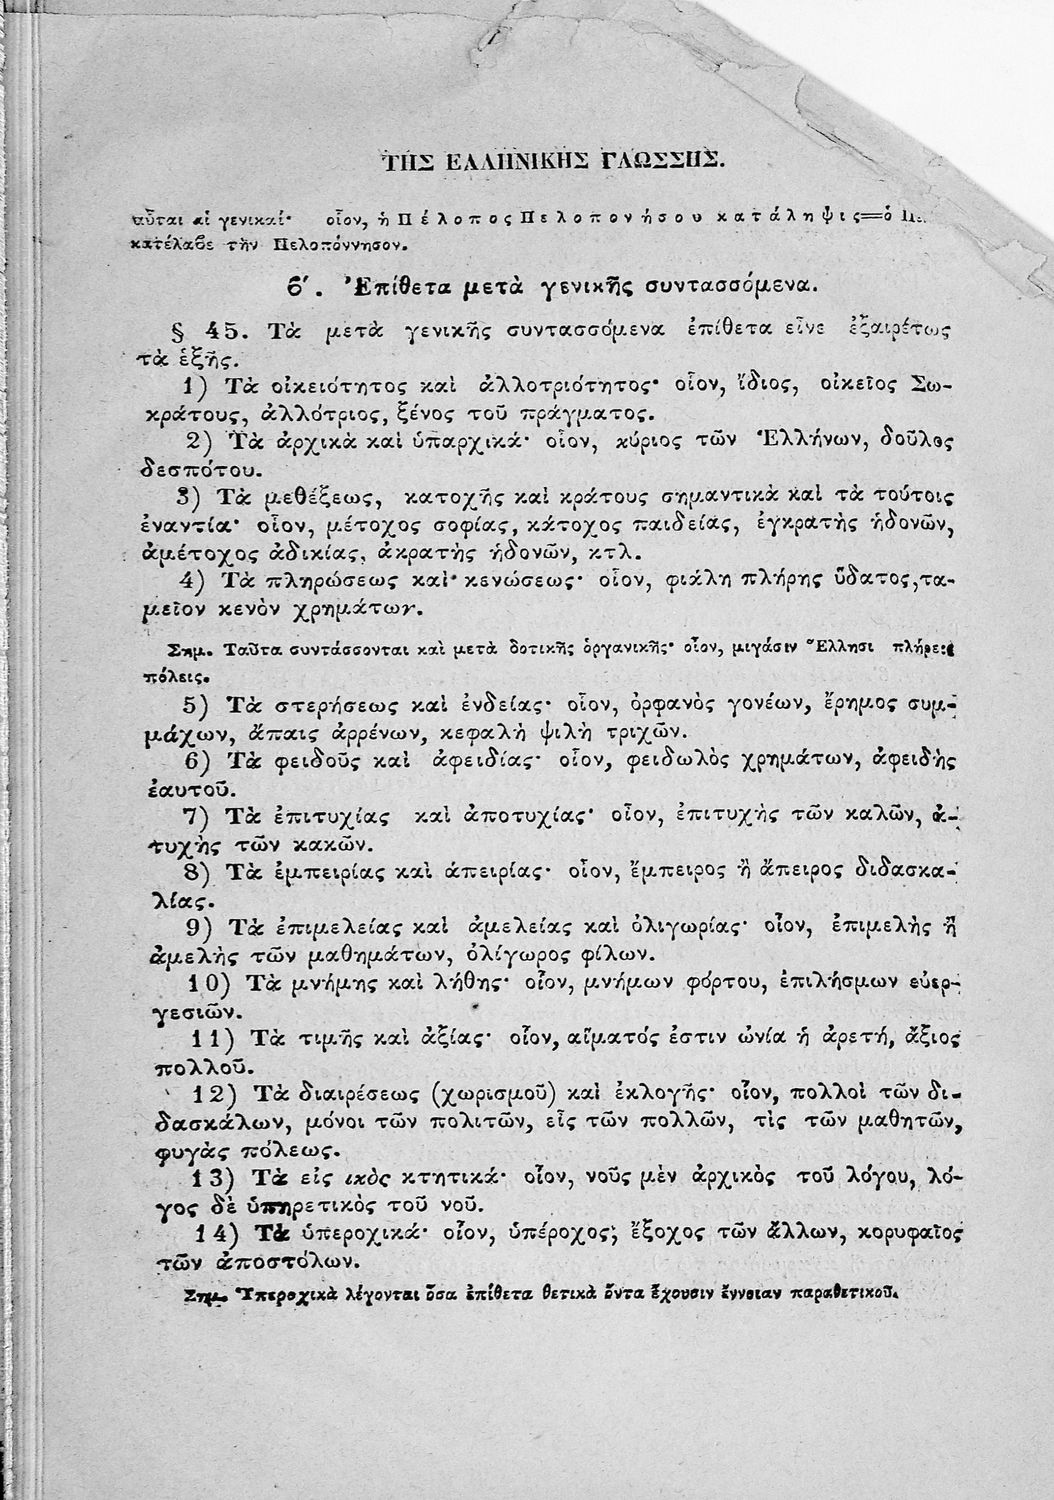 ΤΗΣ ΕΛΛΗΝΙΚΗΣ ΓΛΩΣΣΗΣ.
αὗται αἱ γενικαί· οἷον, ἡ Πέλοπος Πελοπονήσου κατάληψις=ὁ
κατέλαβε τὴν Πελοπόννησον.
6′. Ἐπίθετα μετὰ γενικῆς συντασσόμενα.
§ 45. Τὰ μετὰ γενικῆς συντασσόμενα ἐπίθετα εἶνε ἐξαιρέτως
τὰ ἑξῆς.
1) Τὰ οἰκειότητος καὶ ἀλλοτριότητος· οἷον, ἴδιος, οἰκεῖος Σω-
κράτους, ἀλλότριος, ξένος τοῦ πράγματος.
2) Τὰ ἀρχικὰ καὶ ὑπαρχικά· οἷον, κύριος τῶν Ἑλλήνων, δοῦλος
δεσπότου.
3) Τὰ μεθέξεως, κατοχῆς καὶ κράτους σημαντικὰ καὶ τὰ τούτοις
ἐναντία· οἷον, μέτοχος σοφίας, κάτοχος παιδείας, ἐγκρατὴς ἡδονῶν,
ἀμέτοχος ἀδικίας, ἀκρατὴς ἡδονῶν, κτλ.
4) Τὰ πληρώσεως καὶ κενώσεως· οἷον, φιάλη πλήρης ὕδατος, τα-
μεῖον κενὸν χρημάτων.
Σημ. Ταῦτα συντάσσονται καὶ μετὰ δοτικῆς ὀργανικῆς· οἷον, μιγάσιν Ἕλλησι πλήρεις
πόλεις.
5) Τὰ στερήσεως καὶ ἐνδείας· οἷον, ὀρφανὸς γονέων, ἔρημος συμ-
μάχων, ἄπαις ἀρρένων, κεφαλὴ ψιλὴ τριχῶν.
6) Τὰ φειδοῦς καὶ ἀφειδίας· οἷον, φειδωλὸς χρημάτων, ἀφειδὴς
ἑαυτοῦ.
7) Τὰ ἐπιτυχίας καὶ ἀποτυχίας· οἷον, ἐπιτυχὴς τῶν καλῶν, ἀ-
τυχὴς τῶν κακῶν.
8) Τὰ ἐμπειρίας καὶ ἀπειρίας· οἷον, ἔμπειρος ἢ ἄπειρος διδασκα-
λίας.
9) Τὰ ἐπιμελείας καὶ ἀμελείας καὶ ὀλιγωρίας· οἷον, ἐπιμελὴς ἢ
ἀμελὴς τῶν μαθημάτων, ὀλίγωρος φίλων.
10) Τὰ μνήμης καὶ λήθης· οἷον, μνήμων φόρτου, ἐπιλήσμων εὐερ-
γεσιῶν.
11) Τὰ τιμῆς καὶ ἀξίας· οἷον, αἵματός ἐστιν ὠνία ἡ ἀρετή, ἄξιος
πολλοῦ.
12) Τὰ διαιρέσεως (χωρισμοῦ) καὶ ἐκλογῆς· οἷον, πολλοὶ τῶν δι-
δασκάλων, μόνοι τῶν πολιτῶν, εἷς τῶν πολλῶν, τὶς τῶν μαθητῶν,
φυγὰς πόλεως.
13) Τὰ εἰς ικὸς κτητικά· οἷον, νοῦς μὲν ἀρχικὸς τοῦ λόγου, λό-
γος δὲ ὑπηρετικὸς τοῦ νοῦ.
14) Τὰ ὑπεροχικά· οἷον, ὑπέροχος, ἔξοχος τῶν ἄλλων, κορυφαῖος
τῶν ἀποστόλων.
Σημ. Ὑπεροχικὰ λέγονται ὅσα ἐπίθετα θετικὰ ὄντα ἔχουσιν ἔννοιαν παραθετικοῦ.